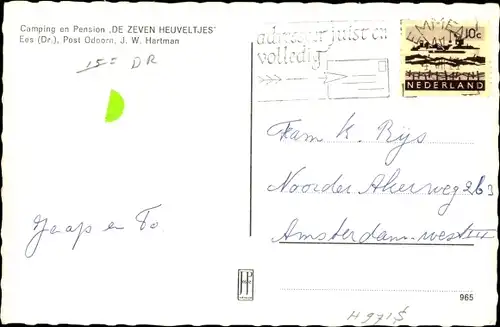 Camping en Pension „DE ZEVEN HEUVELTJES"
Ees (Dr.), Post Odoorn, J. W. Hartman
DR
adresseer juist en
volledig
EMMEN
10c
NEDERLAND
Fam K. Rijs
Noorder Akerweg 263
Amsterdam-west III
Jaap en To.
965
H 971